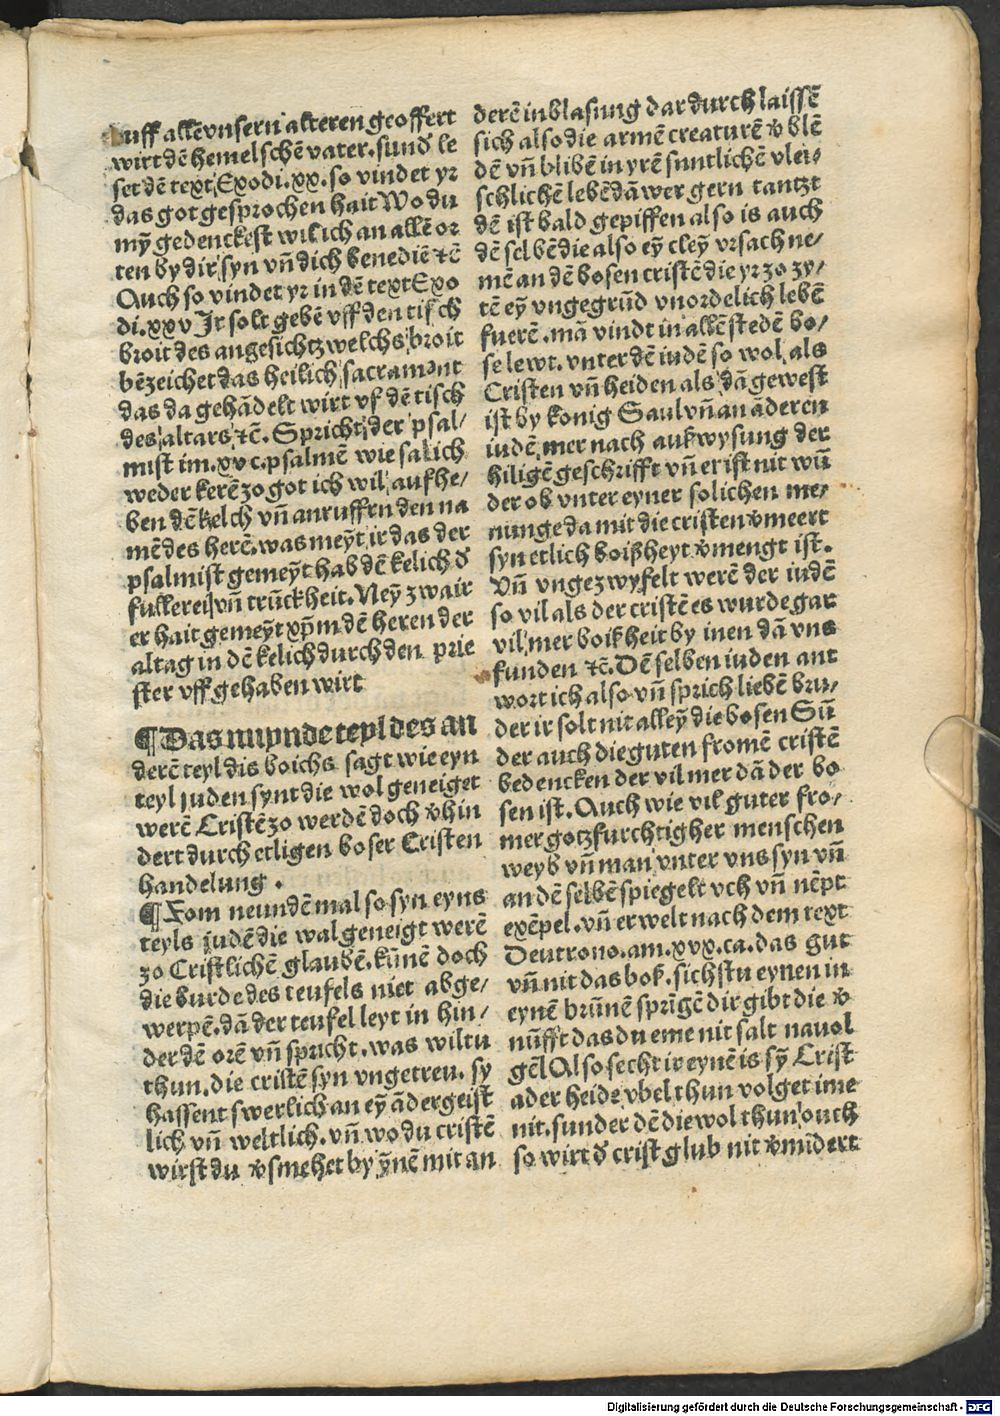 uff allē vnsern alteren geoffert
wirt dē hemelschē vater. sund̕ le
set dē text Exodi .xx. so vindet yr
das got gesprochen hait Wo du
mȳ gedenckest wil ich an allē or
ten by dir syn vn̄ dich benediē ⁊c̄
Auch so vindet yr in dē text Exo
di .xxv Jr solt gebē vff den tisch
broit des angesichtz welchs broit
bēzeichet das heilich sacrament
das da gehādelt wirt vf dē tisch
des altars ⁊c̄. Spricht der psal⸗
mist im .xvc. psalmē wie sal ich
weder kerē zo got ich wil aufhe⸗
ben dē kelch vn̄ anruffrn den na
mē des herē. was meȳt ir das der
psalmist gemeȳt hab dē kelich d̕
fullerei vn̄ trūckheit. Neȳ zwair
er hait gemeȳt xp̄m dē heren der
altag in dē kelich durch den prie
ster vff gehaben wirt
¶ Das nuynde teyl des an
derē teyl dis boichs sagt wie eyn
teyl juden synt die wol geneiget
werē Cristē zo werdē doch v̕hin
dert durch etligen boser Cristen
handelung .
¶ Zom neundē mal so syn eyns
teyls judē die wal geneigt werē
zo Cristlichē glaubē. kūnē doch
die burde des teufels niet abge⸗
werpē. dā der teufel leyt in hin⸗
der dē orē vn̄ spricht. was wiltu
thun. die cristē syn vngetreu. sy
hassent swerlich an eȳ āder geist
lich vn̄ weltlich. vn̄ wo du cristē
wirst du v̕smehet by ȳnē mit an
derē inblasung dar durch laissē
sich also die armē creaturē v̕blē
dē vn̄ blibē in yrē suntlichē vlei⸗
schlichē lebē dā wer gern tantzt
dē ist bald gepiffen also is auch
dē selbē die also eȳ cleȳ vrsach ne⸗
mē an dē bosen cristē die yr zo zy⸗
tē eȳ vngegrūd vnordelich lebē
fuerē. mā vindt in allē stedē bo⸗
se lewt. vnter dē iudē so wol als
Cristen vn̄ heiden als dā gewest
ist by konig Saul vn̄ an āderen
iudē mer nach auszwysung der
hiligē geschrifft vn̄ er ist nit wū
der ob vnter eyner solichen me⸗
nunge da mit die cristen v̕meert
syn etlich boißheyt v̕mengt ist.
Vn̄ vngezwyfelt werē der iudē
so vil als der cristē es wurde gar
vil mer boißheit by inen dā vns
funden ⁊c̄. Dē selben iuden ant
wort ich also vn̄ sprich liebē bru⸗
der ir solt nit alleȳ die bosen Sū
der auch die guten fromē cristē
bedencken der vil mer dā der bo
sen ist. Auch wie vil guter fro⸗
mer gotzfurchtigher menschen
weyb vn̄ man vnter vns syn vn̄
an dē selbē spiegelt vch vn̄ nēpt
exēpel. vn̄ er welt nach dem text
Deutrono. am .xvx. ca. das gut
vn̄ nit das boß. sichstu eynen in
eynē brūnē sprīgē dir gibt die v̕
nūfft das du eme nit salt nauol
gē Also secht ir eynē is sȳ Crist
ader heide vbel thun volget ime
nit. sunder dē die wol thun ouch
so wirt d̕ crist glub nit v̕mīdert
Digitalisierung gefördert durch die Deutsche Forschungsgemeinschaft - DFG